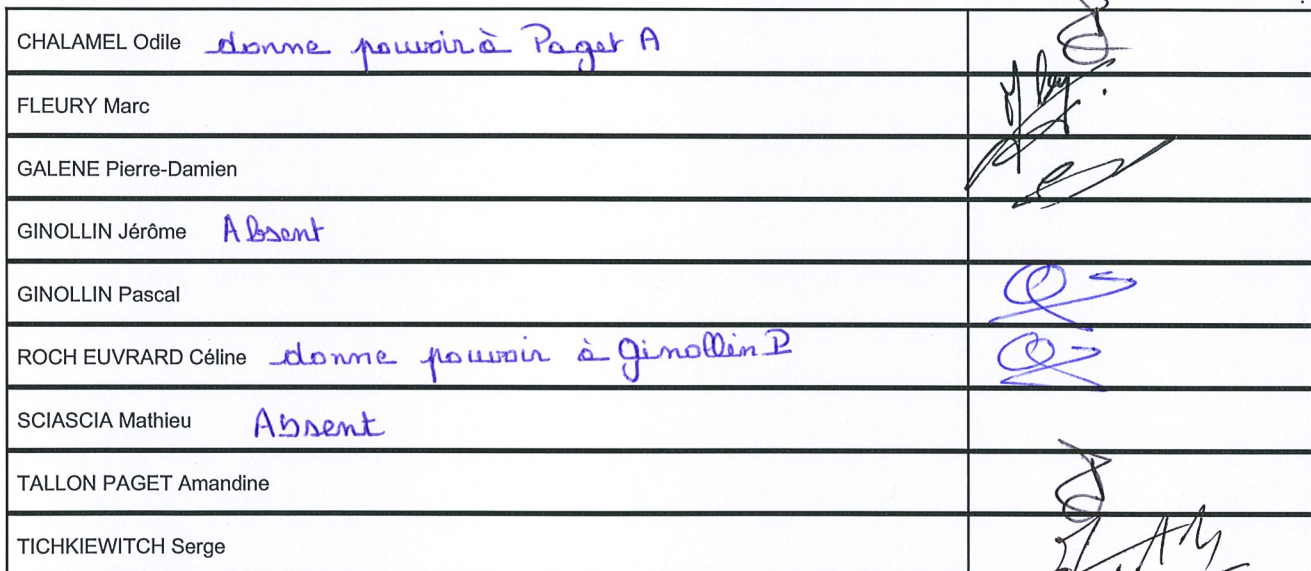 CHALAMEL Odile donne pouvoir à Paget A
FLEURY Marc
GALENE Pierre-Damien
GINOLLIN Jérôme Absent
GINOLLIN Pascal
ROCH EUVRARD Céline donne pouvoir à Ginollin P
SCIASCIA Mathieu Absent
TALLON PAGET Amandine
TICHKIEWITCH Serge